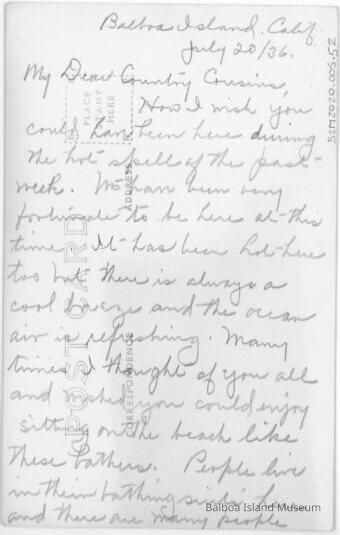 Balboa Island, Calif.
July 20/36.
My Dear Country Cousins,
How I wish you
could have been here during
the hot spell of the past
week. We have been very
fortunate to be here at this
time. It has been hot here
too but there is always a
cool breeze and the ocean
air is refreshing. Many
times I thought of you all
and wished you could enjoy
sitting on the beach like
these bathers. People live
in their bathing suits here
and there are many people
PLACE
STAMP
HERE
POST CARD
ADDRESS
CORRESPONDENCE
SIM2020.005.52
Balboa Island Museum